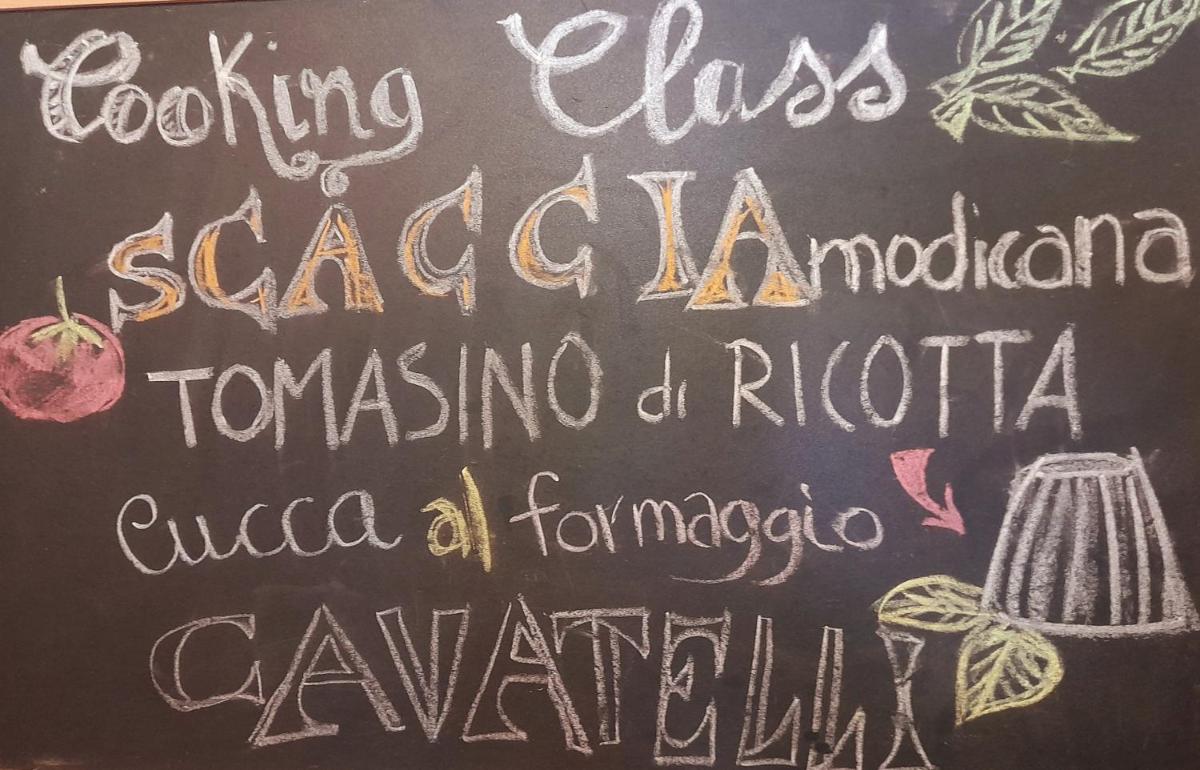 Cooking Class
SCACCIA modicana
TOMASINO di RICOTTA
Cucca al formaggio
CAVATELLI